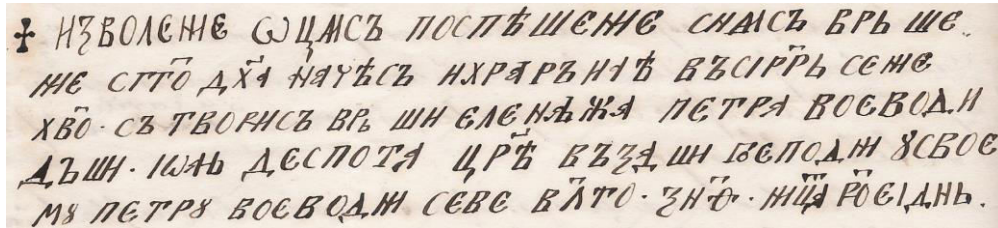 ✝ ИЗВОЛЕНІЕ ѠЦМСЪ ПОСПѢШЕНІЕ СНМСЪ ВРЬ ШЕ
НІЕ СГТО ДХА НАЧѢСЪ ИХРАРЪНІѢ ВЪСІРРЬ СЕНІЕ
ХВО · СЪ ТВОРИСЪ ВРЬ ШИ ЕЛЕНѢЖА ПЕТРА ВОЄВОДИ
ДЪШИ · ІѠАЬ ДЕСПОТА ЦРѢ ВЪЗД ШИ ГОСПОДЖИ ꙊСВОЄ
МꙊ ПЕТРꙊ ВОЄВОДЖИ СЕВЕ ВЛТО · ЗНѲ · МЦА РОЄІДНЬ.